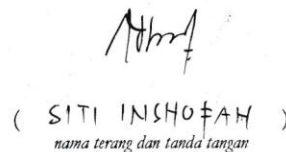 ( SITI INSHOFAH )
nama terang dan tanda tangan